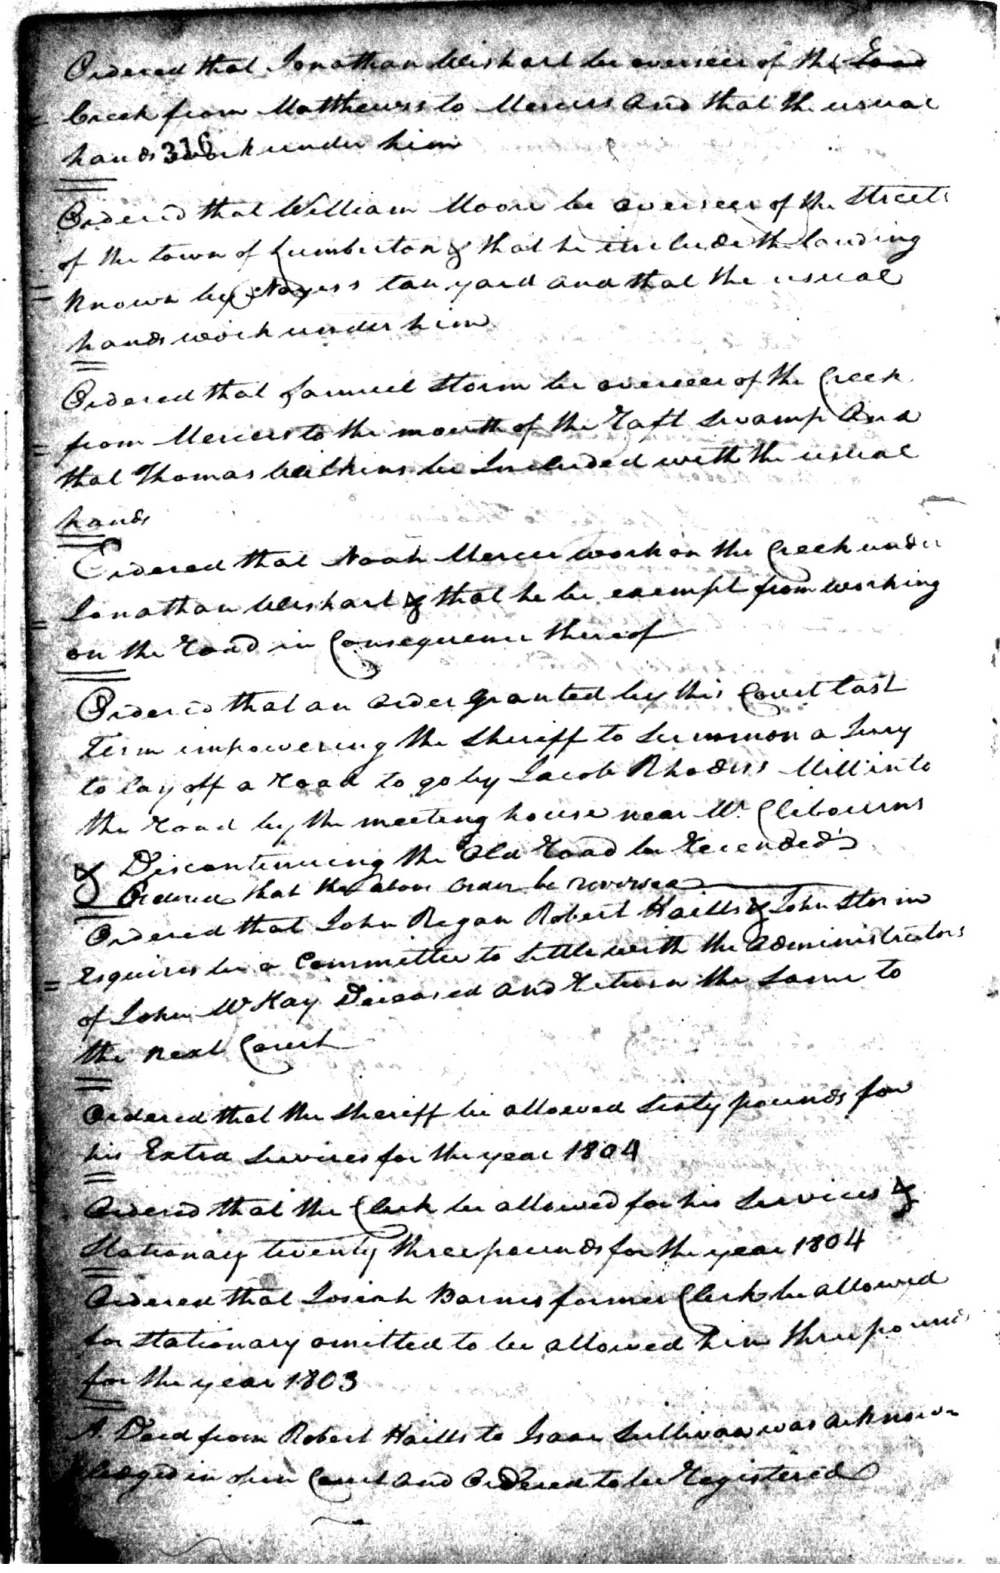 Ordered that Jonathan Wishart be overseer of the Road
Creek from Matthewss to Mercers and that the usual
hands 316 work under him
Ordered that William Moore be overseer of the Streets
of the town of Lumberton & that he include the landing
Known by Noyess tan yard and that the usual
hands work under him
Ordered that Samuel Storm be overseer of the Creek
from Mercers to the mouth of the Raft Swamp And
that Thomas Wilkins be Included with the usual
hands
Ordered that Noah Mercer work on the Creek under
Jonathan Wishart & that he be exempt from working
on the Road in Consequence thereof
Ordered that an order granted by this Court last
Term impowering the Sheriff to Summon a Jury
to lay off a road to go by Jacob Rhodess Mill into
the road by the meeting house near Mc Clibourns
& Discontinuing the Old Road be Recended
Ordered that the above order be reversed
Ordered that John Regan Robert Haills & John Storm
Esquires be a Committee to Settle with the administrators
of John McKay Deceased and return the same to
the next Court
Ordered that the Sheriff be allowed Sixty pounds for
his Extra Services for the year 1804
Ordered that the Clerk be allowed for his Services &
Stationary twenty three pounds for the year 1804
Ordered that Josiah Barnes former Clerk be allowed
for Stationary omitted to be allowed him three pounds
for the year 1803
A Deed from Robert Haills to Isaac Sullivan was acknow
ledged in open Court and Ordered to be Registered